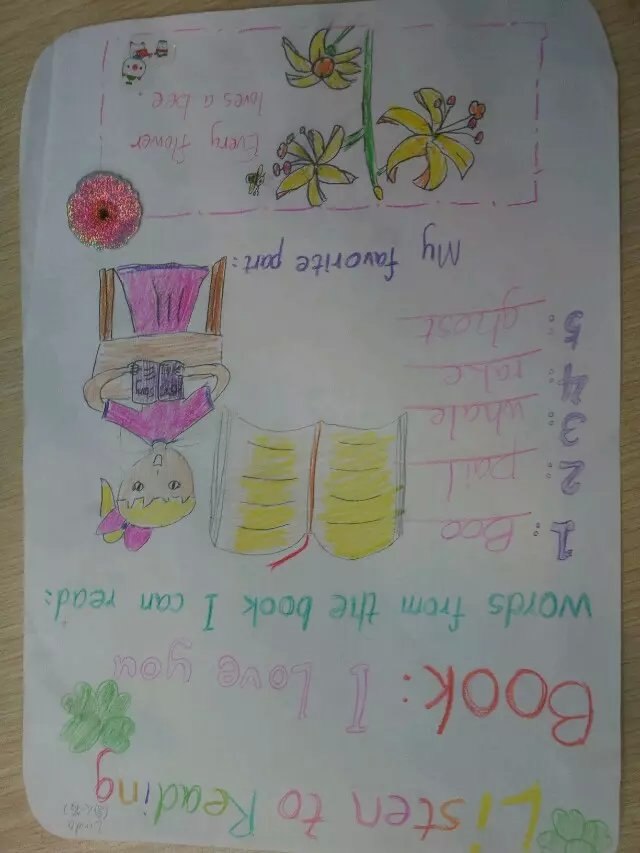 Listen to Reading
Linda
Book: I Love you
words from the book I can read:
1: Boo
2: pail
3: whale
4: rake
5: ghost
My favorite part:
Every flower
loves a bee.